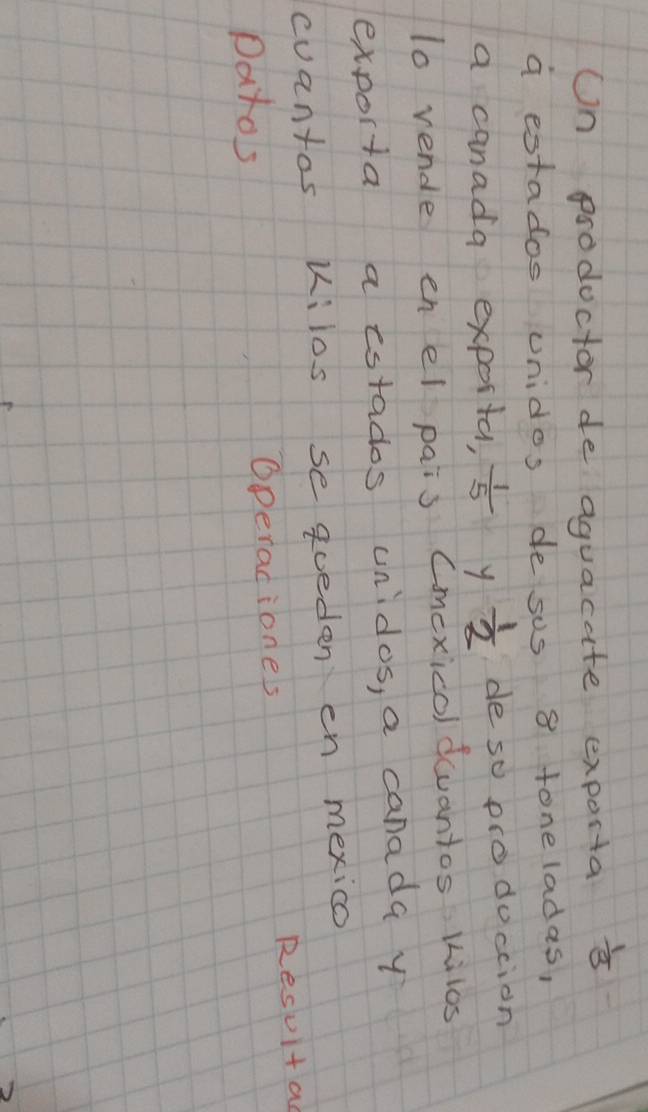 Un productor de aguacate exporta 1/8
a estados unidos de sus 8 toneladas,
a canada exporta, 1/5 y 1/2 de su produccion
lo vende en el pais (mexico) cuantos kilos
exporta a estados unidos, a canada y
cuantos kilos se quedan en mexico
Datos Operaciones Resulta